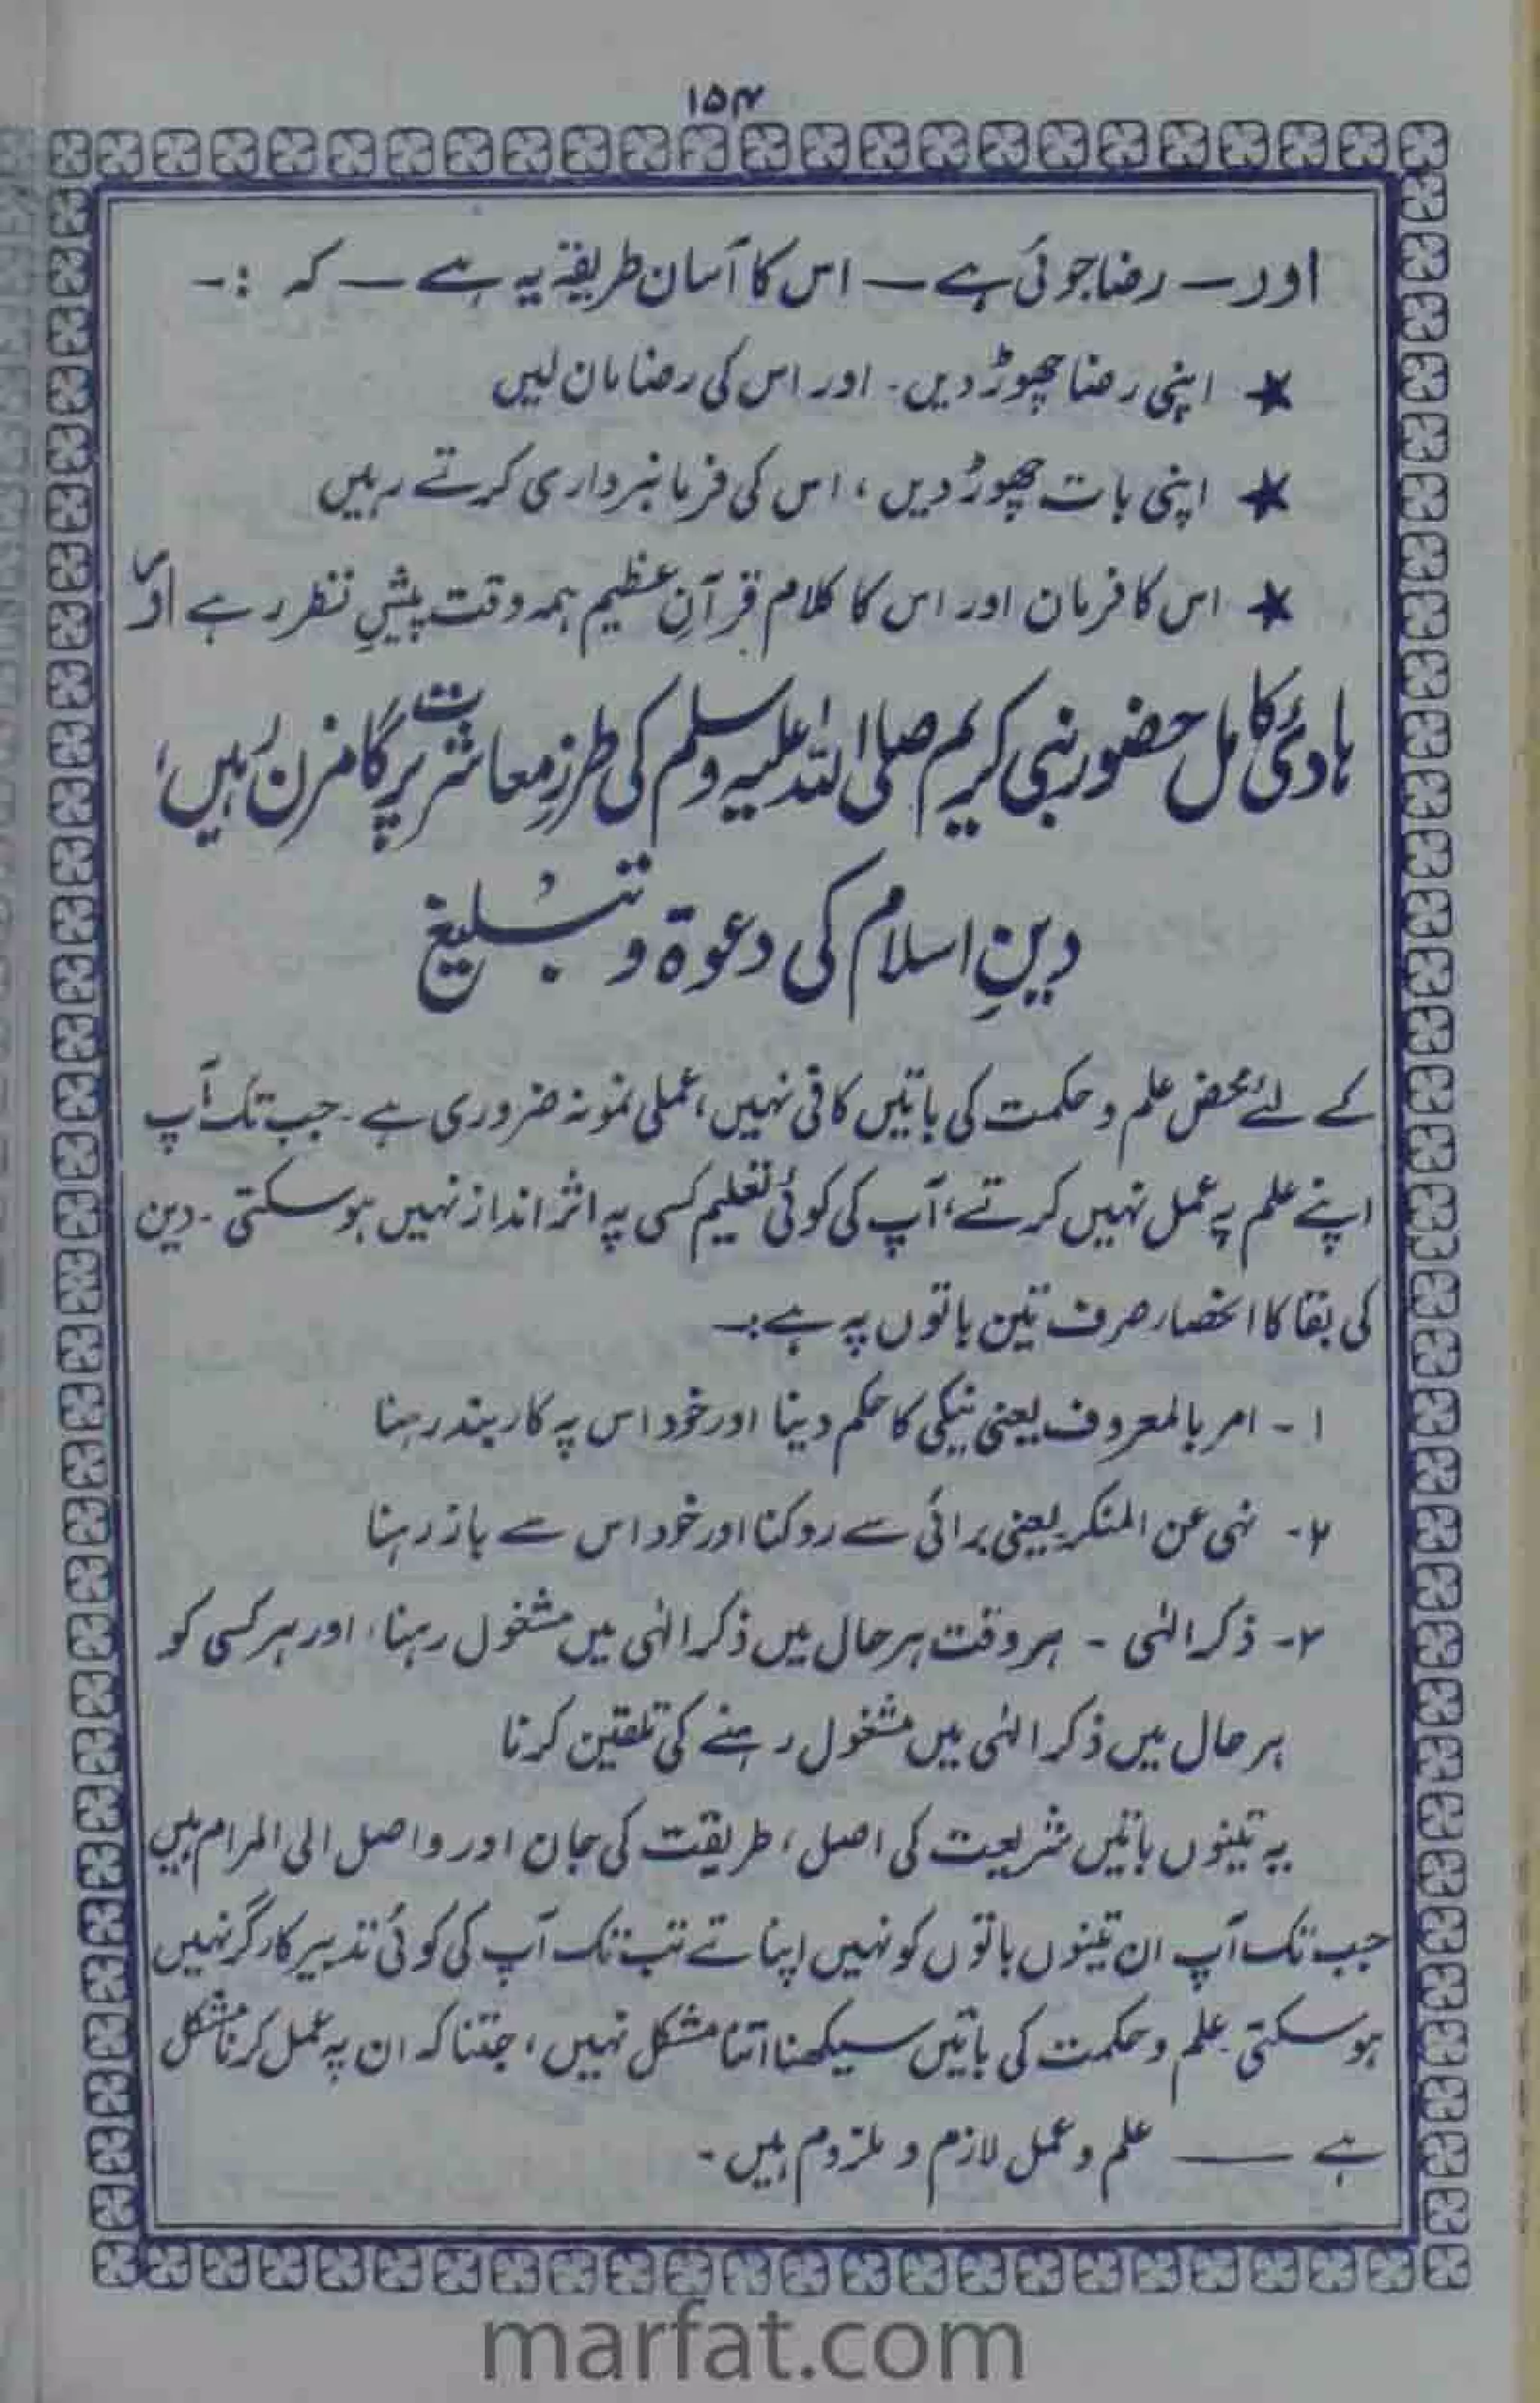 ۱۵۴
اور — رضا جوئی ہے — اس کا آسان طریقہ یہ ہے — کہ :-
★ اپنی رضا چھوڑ دیں۔ اور اس کی رضا مان لیں
★ اپنی بات چھوڑ دیں ، اس کی فرمانبرداری کرتے رہیں
★ اس کا فرمان اور اس کا کلام قرآنِ عظیم ہمہ وقت پیشِ نظر رہے اور
ہادئ کامل حضور نبی کریم صلی اللہ علیہ وسلم کی طرزِ معاشرت پر گامزن رہیں ،
دینِ اسلام کی دعوۃ و تبلیغ
کے لئے محض علم و حکمت کی باتیں کافی نہیں ، عملی نمونہ ضروری ہے۔ جب تک آپ
اپنے علم پہ عمل نہیں کرتے ، آپ کی کوئی تعلیم کسی پہ اثر انداز نہیں ہو سکتی ۔ دین
کی بقا کا انحصار صرف تین باتوں پہ ہے :—
۱ - امر بالمعروف یعنی نیکی کا حکم دینا اور خود اس پہ کاربند رہنا
۲ - نہی عن المنکر یعنی برائی سے روکنا اور خود اس سے باز رہنا
۳ - ذکر الہٰی - ہر وقت ہر حال میں ذکر الہٰی میں مشغول رہنا ، اور ہر کسی کو
ہر حال میں ذکر الہٰی میں مشغول رہنے کی تلقین کرنا
یہ تینوں باتیں شریعت کی اصل ، طریقت کی جان اور واصل الی المرام ہیں
جب تک آپ ان تینوں باتوں کو نہیں اپناتے تب تک آپ کی کوئی تدبیر کارگر نہیں
ہو سکتی ۔ علم و حکمت کی باتیں سیکھنا اتنا مشکل نہیں ، جتنا کہ ان پہ عمل کرنا مشکل
ہے —— علم و عمل لازم و ملزوم ہیں ۔
marfat.com